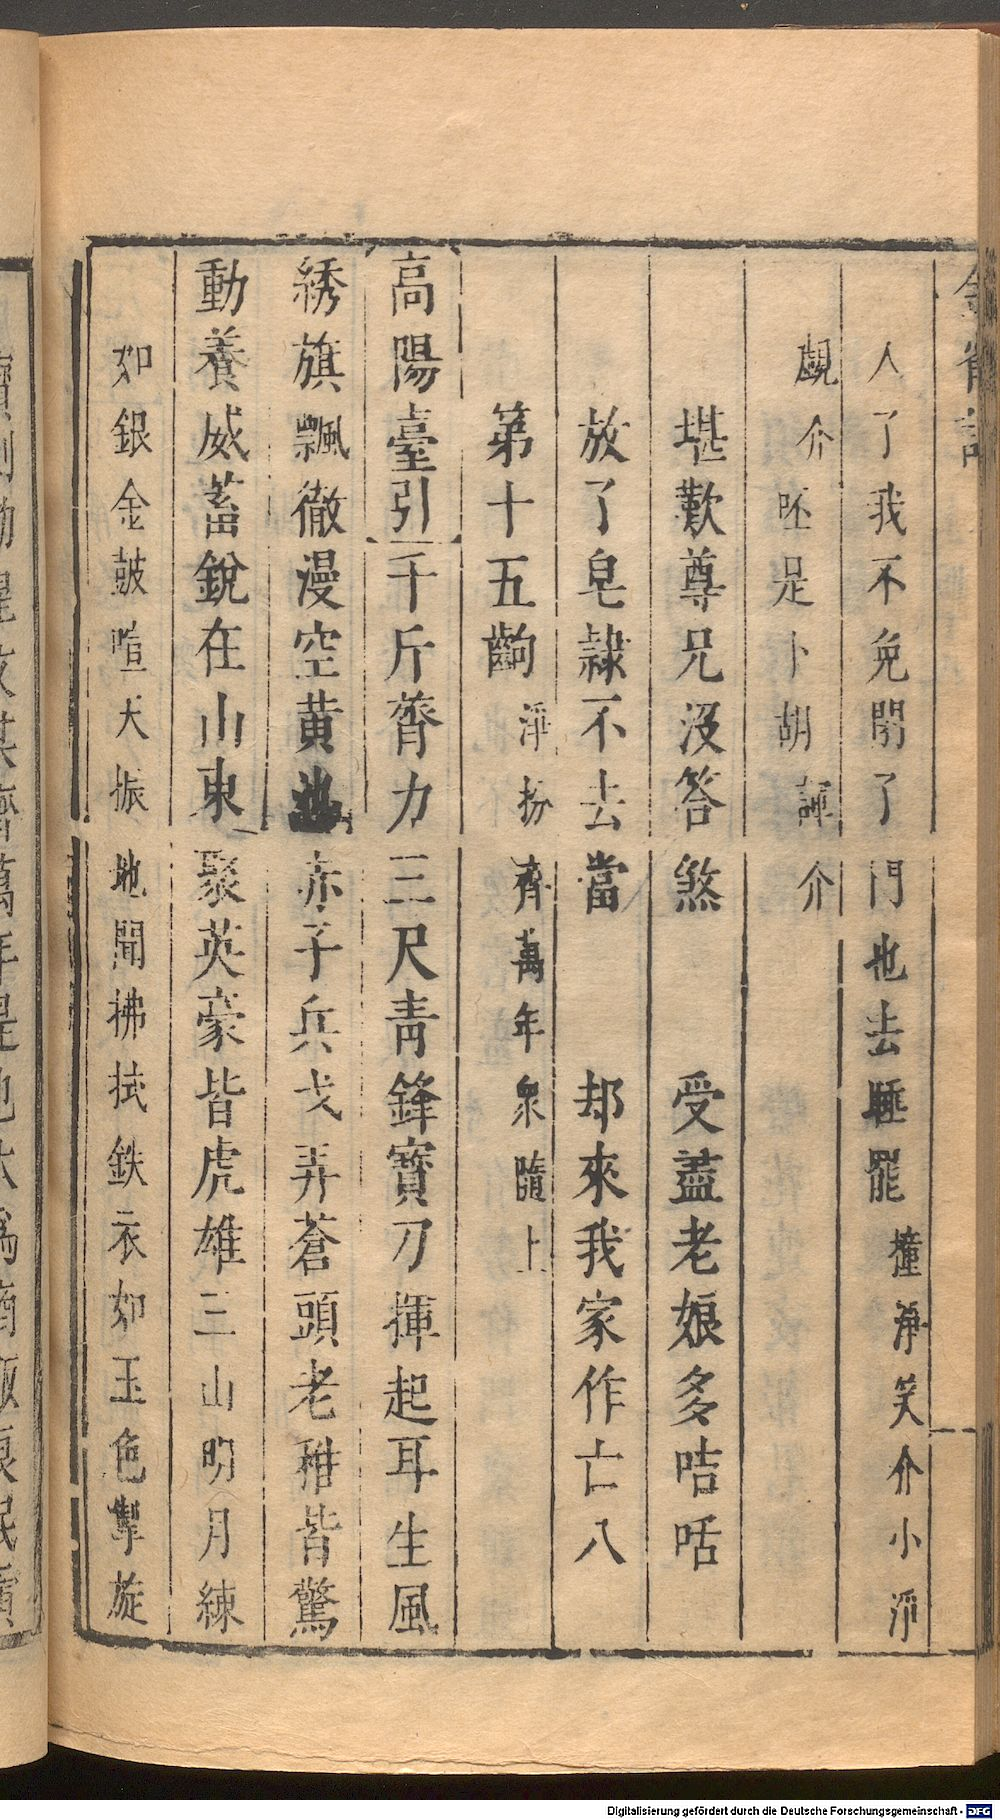 人了我不免閉了門也去睡罷撞淨笑介小淨
覷介呸是卜胡諢介
堪歎尊兄沒答煞　受盡老娘多咭咶
放了皂隷不去當　却來我家作亡八
第十五齣淨扮齊萬年衆隨上
高陽臺引千斤膂力三尺青鋒寶刀揮起耳生風
綉旗飄徹漫空黄池赤子兵戈弄蒼頭老稚皆驚
動養威蓄銳在山東聚英豪皆虎雄三山明月練
如銀金鼓喧天振地聞拂拭鉄衣如玉色掣旋
Digitalisierung gefördert durch die Deutsche Forschungsgemeinschaft - DFG